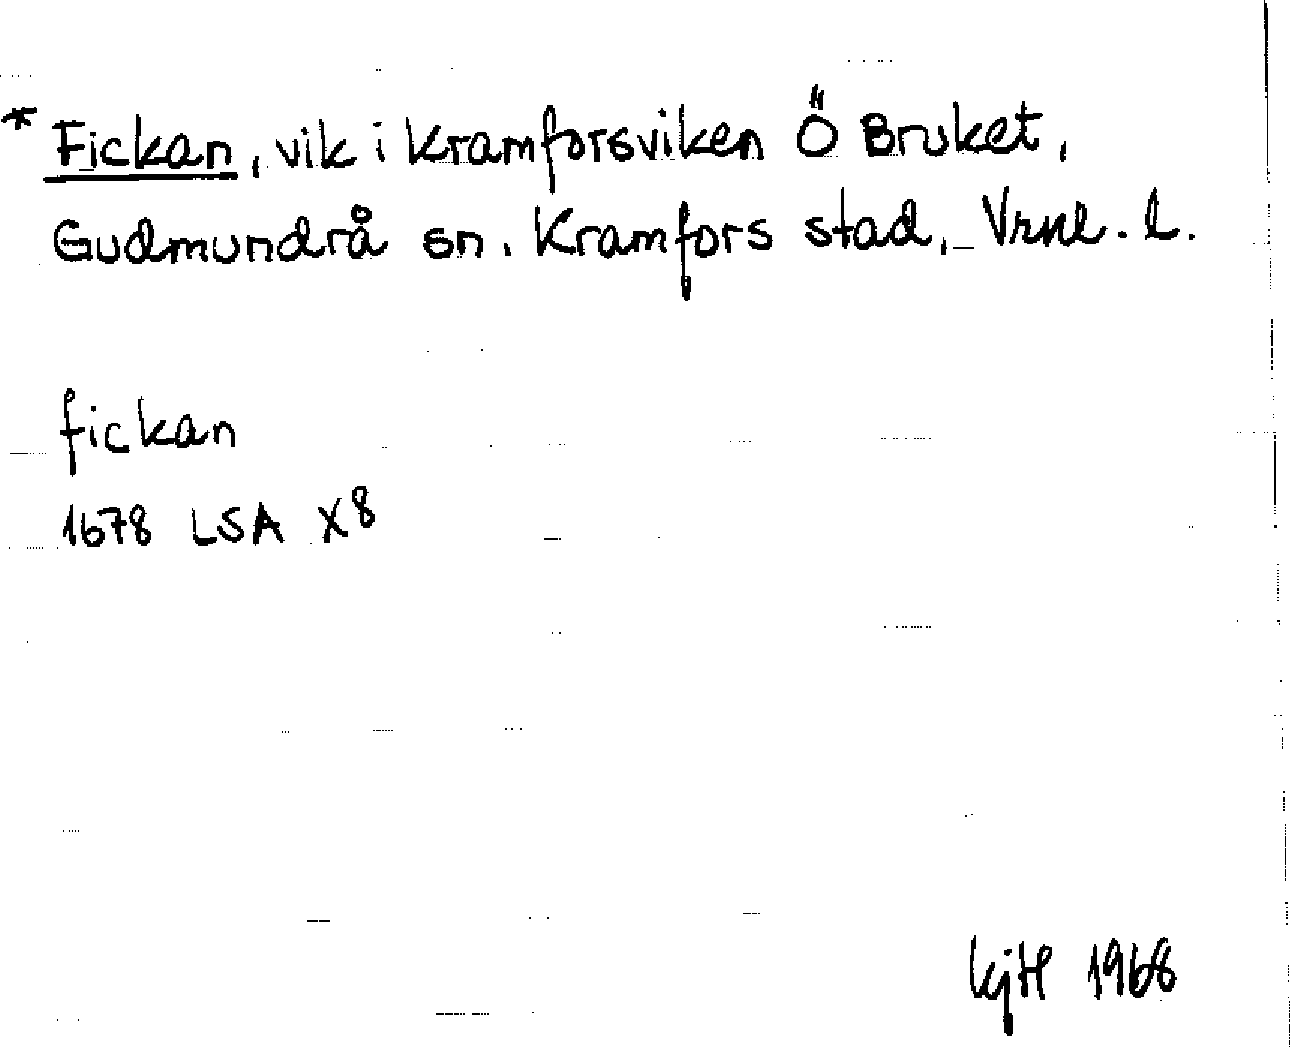 * Fickan, vik i Kramforsviken Ö Bruket,
Gudmundrå sn, Kramfors stad, Vrnl. l.
fickan
1678 LSA X8
KjH 1968